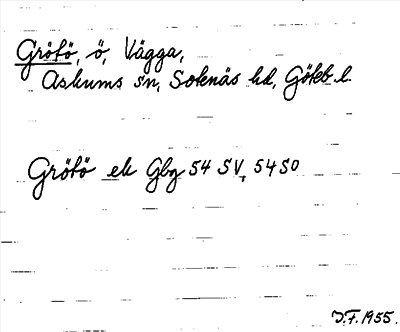 Grötö, ö, Vägga,
Askums sn, Sotenäs hd, Göteb. l.
Grötö ek Gbg 54 SV, 54 SO
I.F. 1955.